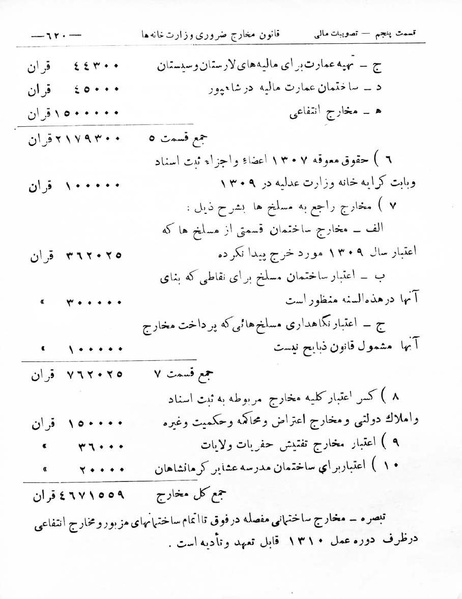 قسمت پنجم — تصویبات مالی قانون مخارج ضروری وزارت خانه ها —٦٢٠—
ج — تهیه عمارت برای مالیه های لارستان و سیستان ٤٤٣٠٠ قران
د — ساختمان عمارت مالیه در شاهپور ٤٥٠٠٠ قران
هـ — مخارج انتفاعی ١٥٠٠٠٠٠ قران
جمع قسمت ٥ ٢١٧٩٣٠٠ قران
٦ ) حقوق معوقه ١٣٠٧ اعضاء و اجزاء ثبت اسناد
و بابت کرایه خانه وزارت عدلیه در ١٣٠٩ ١٠٠٠٠٠ قران
٧ ) مخارج راجع به مسلخ ها بشرح ذیل :
الف — مخارج ساختمان قسمتی از مسلخ ها که
اعتبار سال ١٣٠٩ مورد خرج پیدا نکرده ٣٦٢٠٢٥ قران
ب — اعتبار ساختمان مسلخ برای نقاطی که بنای
آنها در هذه السنه منظور است ٣٠٠٠٠٠ »
ج — اعتبار نگاهداری مسلخ هائی که پرداخت مخارج
آنها مشمول قانون ذبایح نیست ١٠٠٠٠٠ »
جمع قسمت ٧ ٧٦٢٠٢٥ قران
٨ ) کسر اعتبار کلیه مخارج مربوطه به ثبت اسناد
و املاک دولتی و مخارج اعتراض و محاکمه و حکمیت و غیره ١٥٠٠٠٠ قران
٩ ) اعتبار مخارج تفتیش حفریات ولایات ٣٦٠٠٠ »
١٠ ) اعتبار برای ساختمان مدرسه عشایر کرمانشاهان ٢٠٠٠٠ »
جمع کل مخارج ٤٦٧١٥٥٩ قران
تبصره — مخارج ساختمانی مفصله در فوق تا اتمام ساختمانهای مزبور و مخارج انتفاعی
در ظرف دوره عمل ١٣١٠ قابل تعهد و تأدیه است .